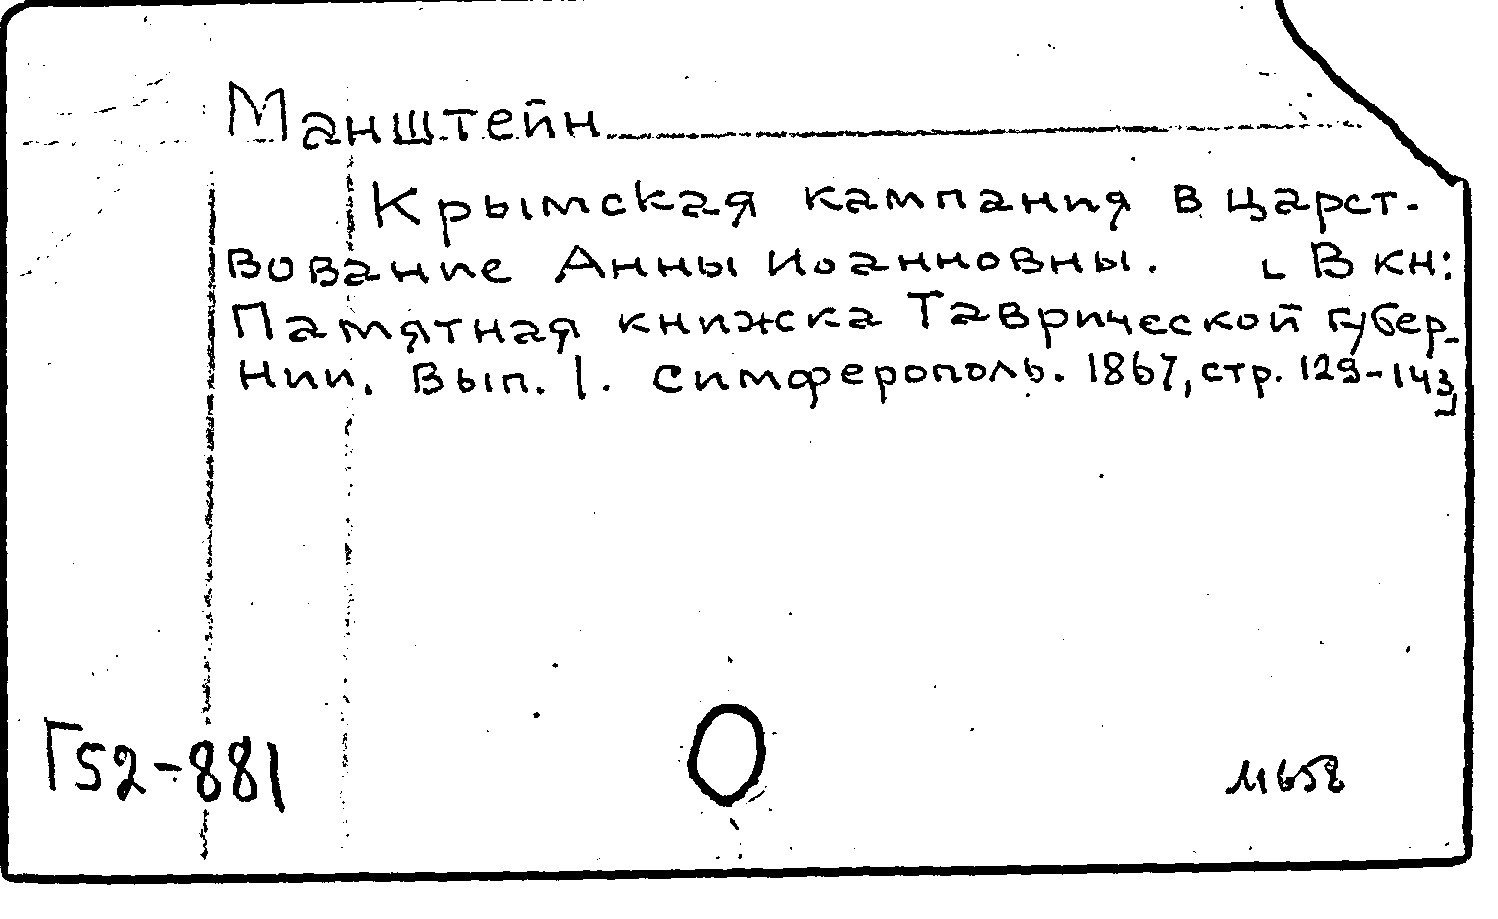 Манштейн
Крымская кампания в царст-
вование Анны Иоанновны. [В кн:
Памятная книжка Таврической губер-
нии. Вып. 1. Симферополь. 1867, стр. 129-143]
Г52-881
М658